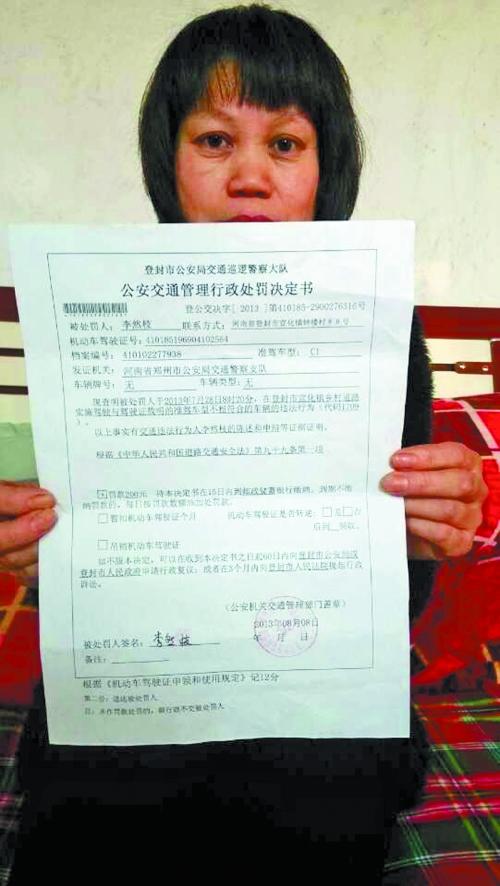 登封市公安局交通巡逻警察大队
公安交通管理行政处罚决定书
登公交决字[2013]第410185-2900276316号
被处罚人：李然枝 联系方式：河南省登封市宣化镇钟楼村
机动车驾驶证号：410185196904102564
档案编号：410102277938 准驾车型：C1
发证机关：河南省郑州市公安局交通警察支队
车辆牌号：无 车辆类型：无
现查明被处罚人于2013年7月28日8时20分，在登封市宣化镇乡村道路
实施驾驶与驾驶证载明的准驾车型不相符合的车辆的违法行为（代码1709
）。
以上事实有交通违法行为人李然枝的陈述和申辩等证据证明。
根据《中华人民共和国道路交通安全法》第九十九条第一项
罚款200元 持本决定书在15日内到邮政储蓄银行缴纳。到期不缴
纳罚款的，每日按罚款数额的3%加处罚款。
暂扣机动车驾驶证个月 机动车驾驶证是否转递：是 否
后到 领取。
吊销机动车驾驶证
如不服本决定，可以在收到本决定书之日起60日内向登封市公安局或
登封市人民政府申请行政复议；或者在3个月内向登封市人民法院提起行政
诉讼。
（公安机关交通管理部门盖章）
2013年08月08日
年 月 日
被处罚人签名：李然枝
备注：
根据《机动车驾驶证申领和使用规定》记12分
第二份：送达被处罚人
注：未作罚款处罚的，银行联不交被处罚人